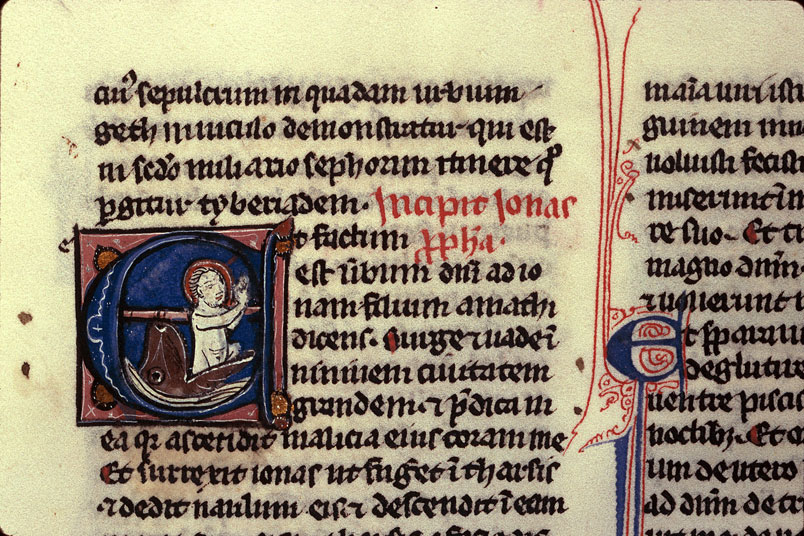 eiꝰ sepulcrum in quadam urbium
geth uiuculo demonstratur qui est
in scďo miliario sephorim itinere q̃
ꝑgitur tyberiadem. Incipit Ionas
Et factum ꝓph̃a.
est ũbum dñi ad io
nam filium amathi
dicens. Surge ⁊ uade ĩ
niniuem ciuitatem
grandem. ⁊ p̃dica in
ea qr ascendit malicia eius coram me
Et surrexit ionas ut fug̃et ĩ tharsis
⁊ dedit naulum eis ⁊ descendit ĩ eam
guinem inn
noluisti fecisti
miserunt ĩ m
re suo. Et ti
magno dñm.
⁊ uouerunt
Et p̃parauit
deglutire
uentre piscis
noctibꝫ. Et o
um de utero
ad dñm de tr